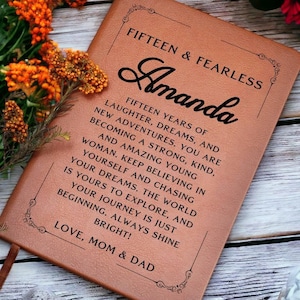 FIFTEEN & FEARLESS
Amanda
FIFTEEN YEARS OF
LAUGHTER, DREAMS, AND
NEW ADVENTURES, YOU ARE
BECOMING A STRONG, KIND,
AND AMAZING YOUNG
WOMAN. KEEP BELIEVING IN
YOURSELF AND CHASING
YOUR DREAMS. THE WORLD
IS YOURS TO EXPLORE, AND
YOUR JOURNEY IS JUST
BEGINNING, ALWAYS SHINE
BRIGHT!
LOVE, MOM & DAD